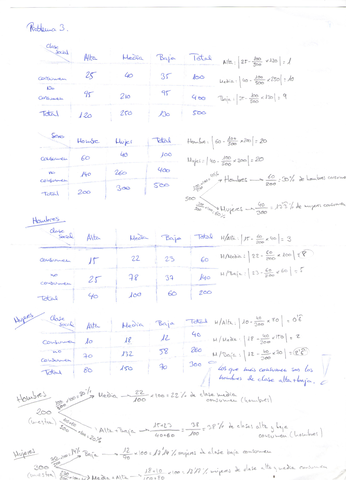 Problema 3.
clase social Alta Media Baja Total
consumen 25 40 35 100
no consumen 95 210 95 400
Total 120 250 130 500
Alta: |25 - 100/500 × 120| = 1
Media: |40 - 100/500 × 250| = 10
Baja: |35 - 100/500 × 130| = 9
Sexo Hombre Mujer Total
consumen 60 40 100
no consumen 140 260 400
Total 200 300 500
Hombre: |60 - 100/500 × 200| = 20
Mujer: |40 - 100/500 × 300| = 20
500
Hombres → 60/200 = 30% de hombres consumen
Mujeres → 40/300 = 13'3% de mujeres consumen
Hombres
clase social Alta Media Baja Total
consumen 15 22 23 60
no consumen 25 78 37 140
Total 40 100 60 200
Mujeres
clase social Alta Media Baja Total
consumen 10 18 12 40
no consumen 70 132 58 260
Total 80 150 70 300
Los que más consumen son los
hombres de clase alta y baja.
Hombres
200
(muestra)
Media → 22/100 × 100 = 22% de clase media
consumen (hombres)
Alta + Baja → 15+23/40+60 = 38/100 = 38% de clase alta y baja
consumen (hombres)
Mujeres
300
(muestra)
Baja → 12/70 × 100 = mujeres de clase baja consumen
Media + Alta → 18+10 × 100 = mujeres de clase alta y media consumen